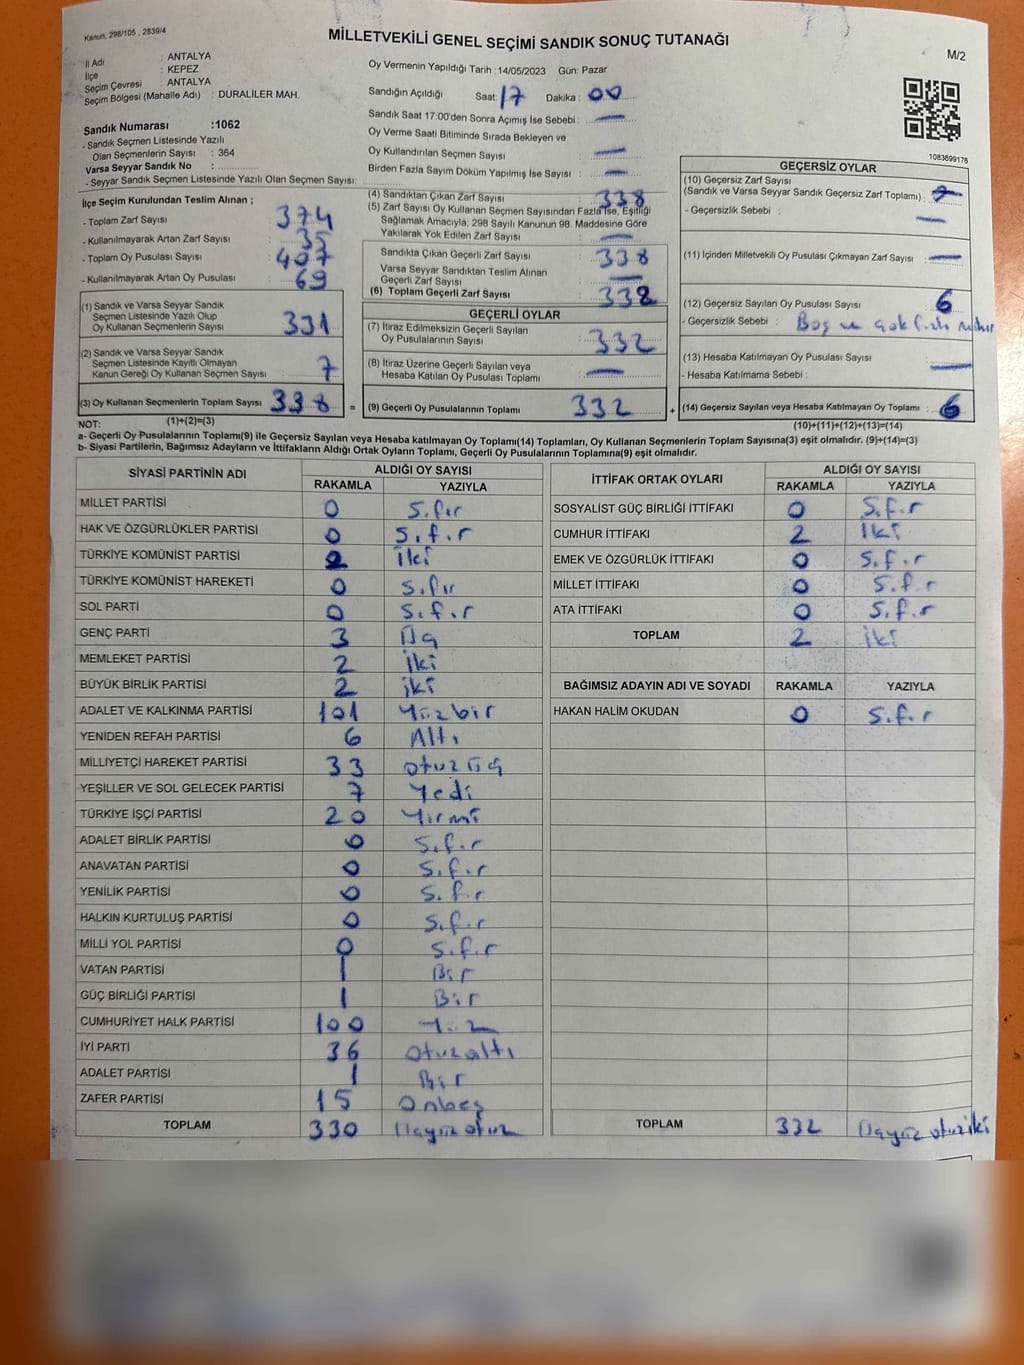 Kanun, 298/105 , 2839/4
MİLLETVEKİLİ GENEL SEÇİMİ SANDIK SONUÇ TUTANAĞI
M/2
İl Adı : ANTALYA
İlçe : KEPEZ
Seçim Çevresi : ANTALYA
Seçim Bölgesi (Mahalle Adı) : DURALİLER MAH.
Sandık Numarası :1062
- Sandık Seçmen Listesinde Yazılı
Olan Seçmenlerin Sayısı : 364
Varsa Seyyar Sandık No :
- Seyyar Sandık Seçmen Listesinde Yazılı Olan Seçmen Sayısı:
Oy Vermenin Yapıldığı Tarih :14/05/2023 Gün: Pazar
Sandığın Açıldığı Saat: 17 Dakika : 00
Sandık Saat 17:00'den Sonra Açımış İse Sebebi : —
Oy Verme Saati Bitiminde Sırada Bekleyen ve
Oy Kullandırılan Seçmen Sayısı : —
Birden Fazla Sayım Döküm Yapılmış İse Sayısı : —
1083699176
İlçe Seçim Kurulundan Teslim Alınan ;
- Toplam Zarf Sayısı : 374
- Kullanılmayarak Artan Zarf Sayısı : 35
- Toplam Oy Pusulası Sayısı : 407
- Kullanılmayarak Artan Oy Pusulası : 69
(1) Sandık ve Varsa Seyyar Sandık
Seçmen Listesinde Yazılı Olup
Oy Kullanan Seçmenlerin Sayısı : 331
(2) Sandık ve Varsa Seyyar Sandık
Seçmen Listesinde Kayıtlı Olmayan
Kanun Gereği Oy Kullanan Seçmen Sayısı : 7
(3) Oy Kullanan Seçmenlerin Toplam Sayısı 338 =
(1)+(2)=(3)
(4) Sandıktan Çıkan Zarf Sayısı : 338
(5) Zarf Sayısı Oy Kullanan Seçmen Sayısından Fazla İse, Eşitliği
Sağlamak Amacıyla; 298 Sayılı Kanunun 98. Maddesine Göre
Yakılarak Yok Edilen Zarf Sayısı : —
Sandıkta Çıkan Geçerli Zarf Sayısı : 338
Varsa Seyyar Sandıktan Teslim Alınan
Geçerli Zarf Sayısı : —
(6) Toplam Geçerli Zarf Sayısı : 338
GEÇERLİ OYLAR
(7) İtiraz Edilmeksizin Geçerli Sayılan
Oy Pusulalarının Sayısı : 332
(8) İtiraz Üzerine Geçerli Sayılan veya
Hesaba Katılan Oy Pusulası Toplamı : —
(9) Geçerli Oy Pusulalarının Toplamı 332 +
GEÇERSİZ OYLAR
(10) Geçersiz Zarf Sayısı
(Sandık ve Varsa Seyyar Sandık Geçersiz Zarf Toplamı) :
- Geçersizlik Sebebi : —
(11) İçinden Milletvekili Oy Pusulası Çıkmayan Zarf Sayısı : —
(12) Geçersiz Sayılan Oy Pusulası Sayısı : 6
- Geçersizlik Sebebi : Boş ve çok fazla mühür
(13) Hesaba Katılmayan Oy Pusulası Sayısı : —
- Hesaba Katılmama Sebebi :
(14) Geçersiz Sayılan veya Hesaba Katılmayan Oy Toplamı : 6
(10)+(11)+(12)+(13)=(14)
NOT:
a- Geçerli Oy Pusulalarının Toplamı(9) ile Geçersiz Sayılan veya Hesaba katılmayan Oy Toplamı(14) Toplamları, Oy Kullanan Seçmenlerin Toplam Sayısına(3) eşit olmalıdır. (9)+(14)=(3)
b- Siyasi Partilerin, Bağımsız Adayların ve İttifakların Aldığı Ortak Oyların Toplamı, Geçerli Oy Pusulalarının Toplamına(9) eşit olmalıdır.
SİYASİ PARTİNİN ADI ALDIĞI OY SAYISI
RAKAMLA YAZIYLA
MİLLET PARTİSİ 0 Sıfır
HAK VE ÖZGÜRLÜKLER PARTİSİ 0 Sıfır
TÜRKİYE KOMÜNİST PARTİSİ 2 iki
TÜRKİYE KOMÜNİST HAREKETİ 0 Sıfır
SOL PARTİ 0 Sıfır
GENÇ PARTİ 3 Üç
MEMLEKET PARTİSİ 2 iki
BÜYÜK BİRLİK PARTİSİ 2 iki
ADALET VE KALKINMA PARTİSİ 101 Yüzbir
YENİDEN REFAH PARTİSİ 6 Altı
MİLLİYETÇİ HAREKET PARTİSİ 33 otuzüç
YEŞİLLER VE SOL GELECEK PARTİSİ 7 Yedi
TÜRKİYE İŞÇİ PARTİSİ 20 Yirmi
ADALET BİRLİK PARTİSİ 0 Sıfır
ANAVATAN PARTİSİ 0 Sıfır
YENİLİK PARTİSİ 0 Sıfır
HALKIN KURTULUŞ PARTİSİ 0 Sıfır
MİLLİ YOL PARTİSİ 0 Sıfır
VATAN PARTİSİ 1 Bir
GÜÇ BİRLİĞİ PARTİSİ 1 Bir
CUMHURİYET HALK PARTİSİ 100 Yüz
İYİ PARTİ 36 otuzaltı
ADALET PARTİSİ 1 Bir
ZAFER PARTİSİ 15 Onbeş
TOPLAM 330 Üçyüzotuz
İTTİFAK ORTAK OYLARI ALDIĞI OY SAYISI
RAKAMLA YAZIYLA
SOSYALİST GÜÇ BİRLİĞİ İTTİFAKI 0 Sıfır
CUMHUR İTTİFAKI 2 İki
EMEK VE ÖZGÜRLÜK İTTİFAKI 0 Sıfır
MİLLET İTTİFAKI 0 Sıfır
ATA İTTİFAKI 0 Sıfır
TOPLAM 2 iki
BAĞIMSIZ ADAYIN ADI VE SOYADI RAKAMLA YAZIYLA
HAKAN HALİM OKUDAN 0 Sıfır
TOPLAM 332 Üçyüz otuziki